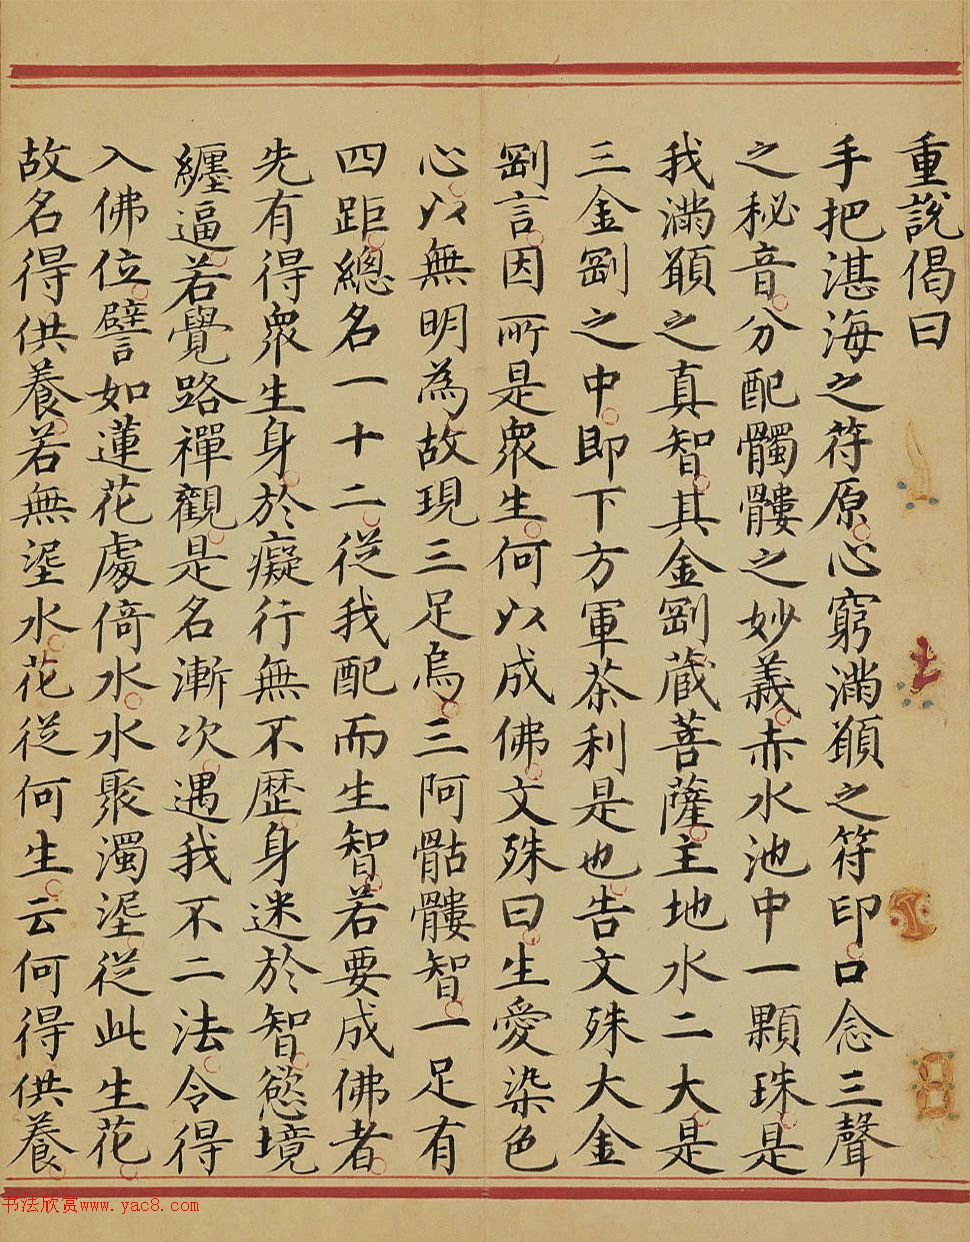 重說偈曰
手把湛海之符原心窮滿願之符印口念三聲
之秘音分配髑髏之妙義赤水池中一顆珠是
我滿願之真智其金剛藏菩薩主地水二大是
三金剛之中即下方軍茶利是也告文殊大金
剛言因所是眾生何以成佛文殊曰生愛染色
心以無明為故現三足烏三阿骷髏智一足有
四距總名一十二從我配而生智若要成佛者
先有得眾生身於癡行無不歷身迷於智慾境
纏逼若覺路禪觀是名漸次遇我不二法令得
入佛位譬如蓮花處倚水水聚濁埿從此生花
故名得供養若無埿水花從何生云何得供養
书法欣赏www.yac8.com